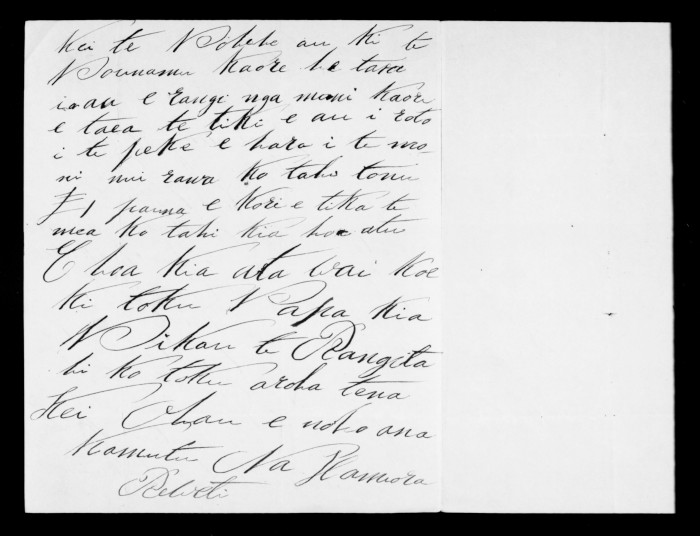 Kei te Pohehe au ki te
Pounamu Kaore he taea
ia au e rangi nga moni Kaore
e taea te tiki e au i roto
i te peke e hara i te mo-
ni nui rawa ko tahi tonu
£1 pauna e Kore e tika te
mea ko tahi kia hoe atu
E hoa Kia ata wai koe
ki toku Papa kia
Pikau te Rangita
hi ko toku aroha tena
kei Ohau e noho ana
Kamutu Na Hamiora